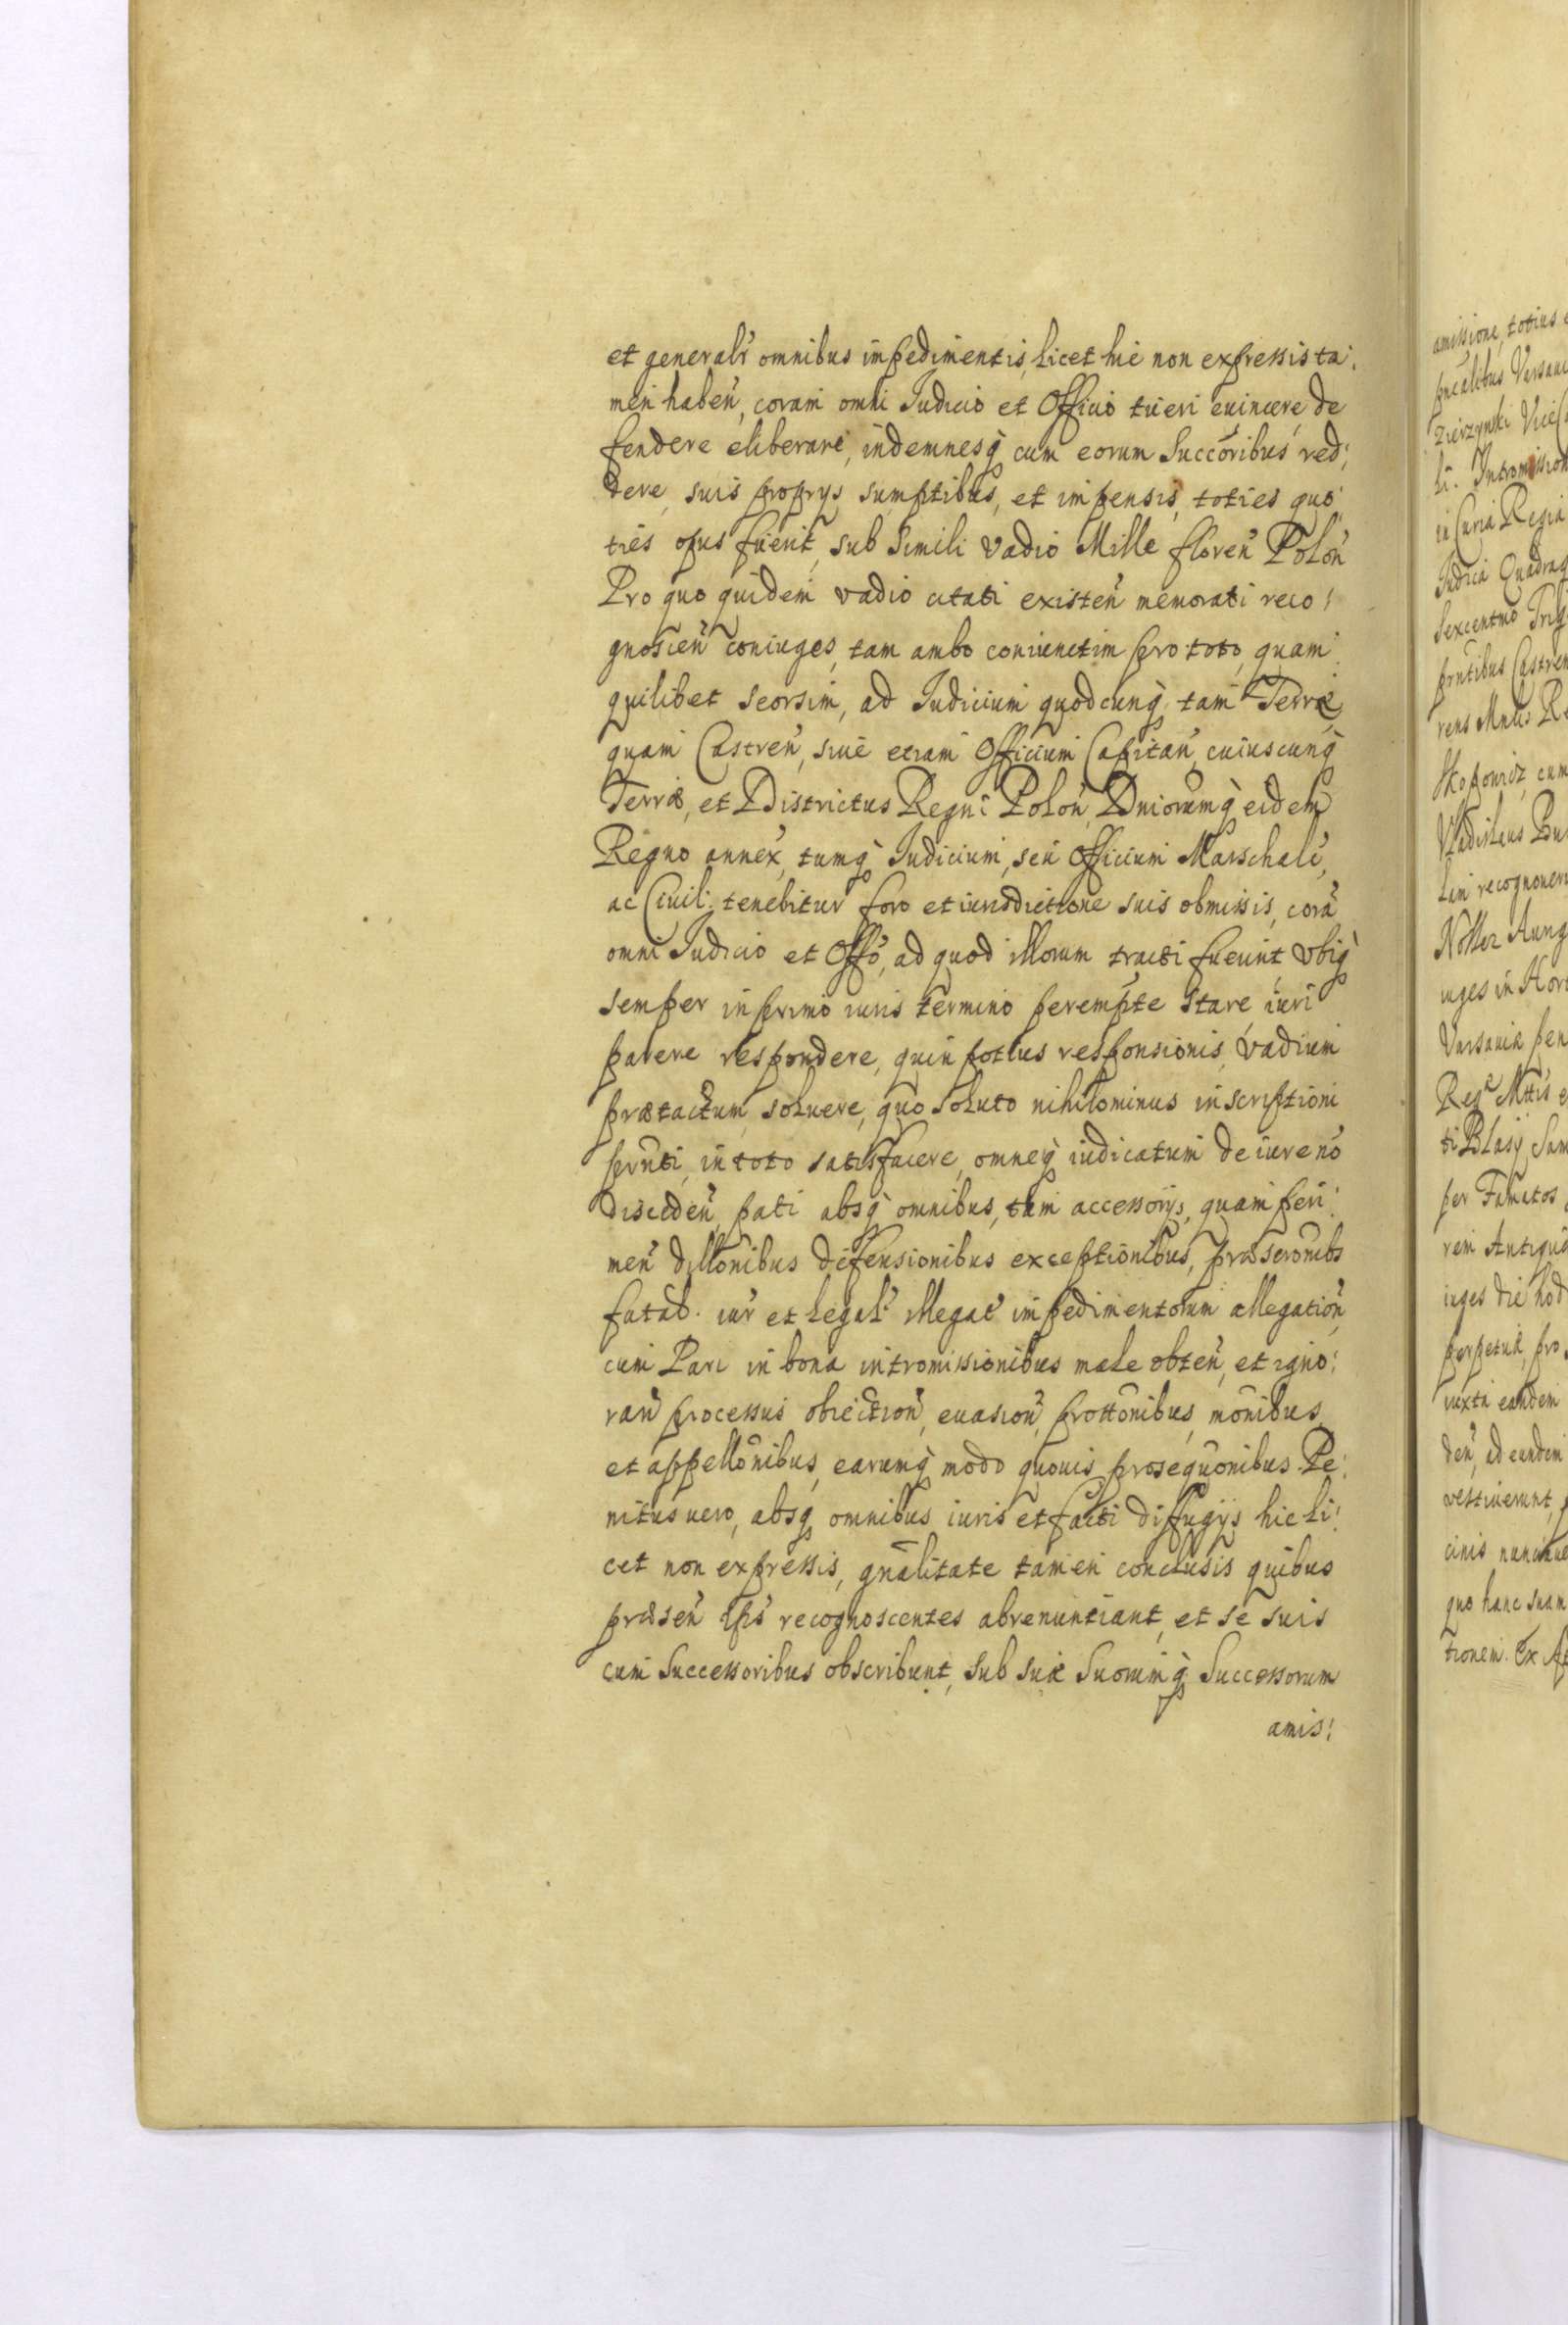 et generalr omnibus impedimentis, licet hic non expressis ta:
men haben, coram omni Iudicio et Officio tueri euincere de
fendere eliberare, indemnesq cum eorum Succoribus red:
dere, suis proprys sumptibus, et impensis, toties quo
ties opus fuerit, sub Simili vadio Mille floren Polon
Pro quo quidem vadio citati existen memorati reco:
gnoscen coniuges, tam ambo coniunctim pro toto, quam
quilibet seorsim, ad Iudicium quodcunq tam Terræ,
quam Castren, siue etiam Officium Capitan, cuiuscunq
Terræ, et Districtus Regni Polon, Dniorumq eidem
Regno annex, tumq Iudicium, seu Officium Marschale,
ac Ciuil: tenebitur foro et iurisdictione suis obmissis, corã
omni Iudicio et Offo, ad quod illorum tracti fuerint, vbiq
semper in primo iuris termino perempte stare iuri
parere respondere, quin potius responsionis, vadium
prætactum soluere, quo soluto nihilominus inscriptioni
prnti, in toto satisfacere, omneq iudicatum de iure no
disceden, pati absq omnibus, tam accessorijs, quam peri:
men dillonibus defensionibus exceptionibus, præscronibs
fatal. iur et legal: illegat impedimentorum allegation,
cum Pari in bona intromissionibus male obten, et igno:
ran processus obiection, euasion, prottonibus, monibus
et appellonibus, earumq modo quouis prosequonibus. Pe:
nitus uero, absq omnibus iuris et facti diffugijs hic li:
cet non expressis, gnalitate tamen conclusis quibus
præsen ips recognoscentes abrenuntiant, et se suis
cum Successoribus obscribunt, sub suæ Suorumq Successorum
amis:
amissione, totius
Zierzynski
li. Intromission
in Curia Regia
Iudicia Quadrag
Sexcentmo Trig
prntibus Castren
Skopowicz, cum
lini recognouer
uges in
Varsauiæ pen
ti Blasij Sam
per Famatos
rem Antiqua
iuges die hod
perpetuæ, pro
iuxta eandem
den, ad eundem
vestiuerunt,
quo hanc suam
tionem. Ex